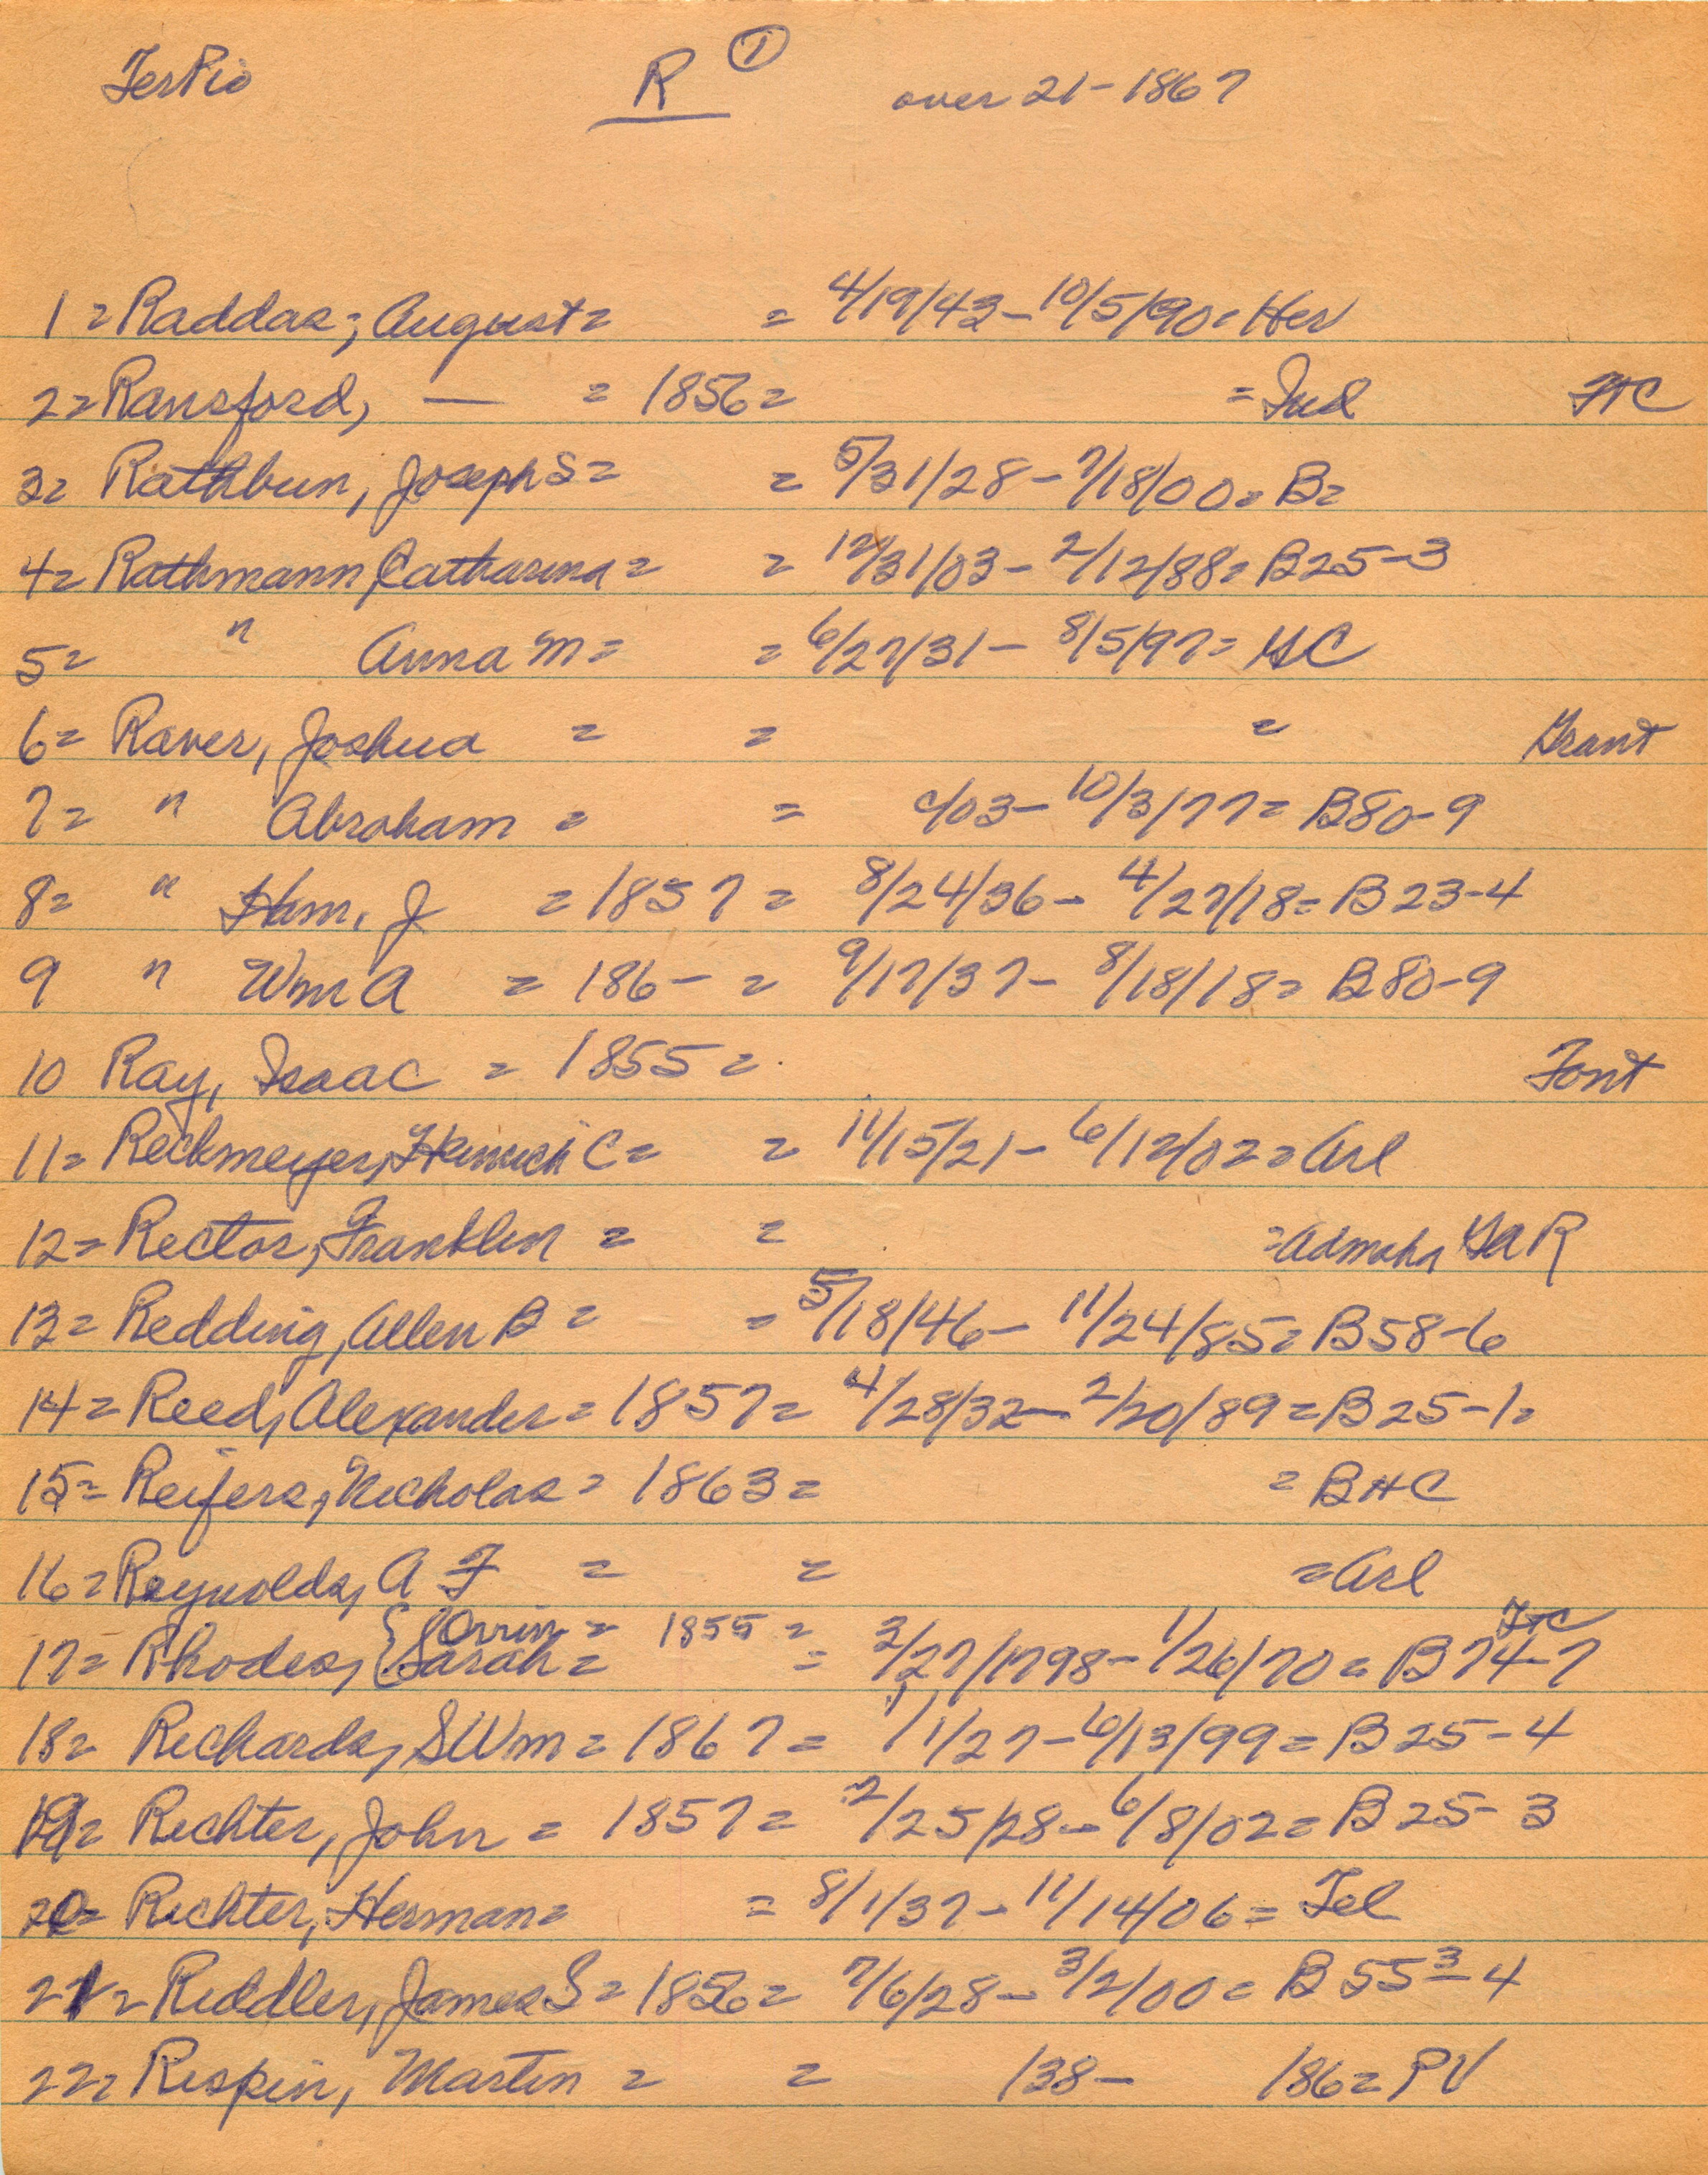 TerPio R ① over 21-1867
1= Raddas, August= = 4/19/43-10/5/90= Her
2= Ransford, — = 1856= = Ind FtC
3= Rathbun, Joseph S= = 5/31/28-7/18/00= B=
4= Rathmann, Catharina= = 12/31/03-2/12/88= B25-3
5= " Anna M= = 6/27/31-8/5/97= GC
6= Raver, Joshua = = = Grant
7= " Abraham = = c/03-10/3/77= B80-9
8= " Ham. J =1857= 8/24/36-4/27/18= B23-4
9 " Wm A = 186- = 9/17/37-8/18/18= B80-9
10 Ray, Isaac = 1855= Font
11= Reckmeyer, Heinrich C= = 11/15/21-6/12/02= Arl
12= Rector, Franklin = = =Admaha GAR
13= Redding, Allen B= =5/18/46-11/24/85= B58-6
14= Reed, Alexander= 1857= 4/28/32-2/20/89= B25-1=
15= Reifers, Nicholas= 1863= = BHC
16= Reynolds, A F = = =Arl
Orrin = 1855 = FtC
17= Rhodes, { Sarah= = 3/27/1798-1/26/70= B74-7
18= Richards, S Wm= 1867= 1/1/27-6/13/99= B25-4
19= Richter, John = 1857= 2/25/28-6/8/02= B25-3
20= Richter, Herman= = 8/1/37-11/14/06= Tel
21= Riddler, James S= 1856= 7/6/28-3/2/00= B55 3-4
22= Rispin, Martin = = 138- 186= PV